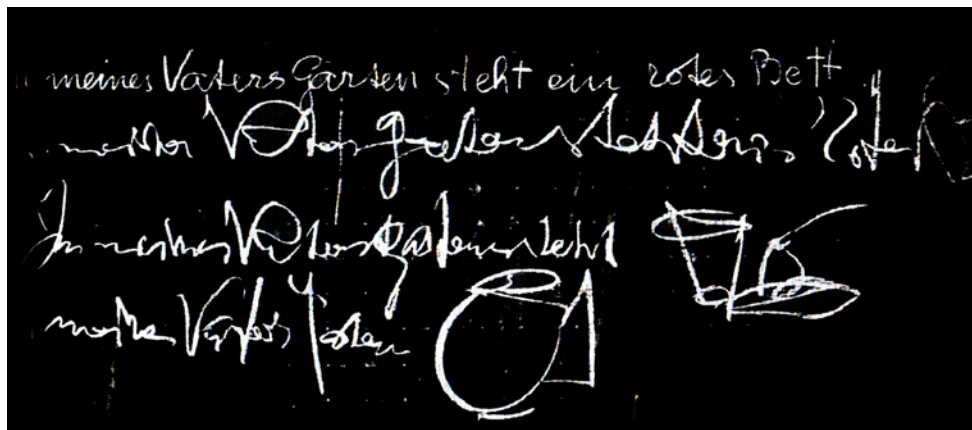 meines Vaters Garten steht ein rotes Bett
meines Vaters garten steht ein rotes
In meines Vaters garten steht
meines Vaters garten